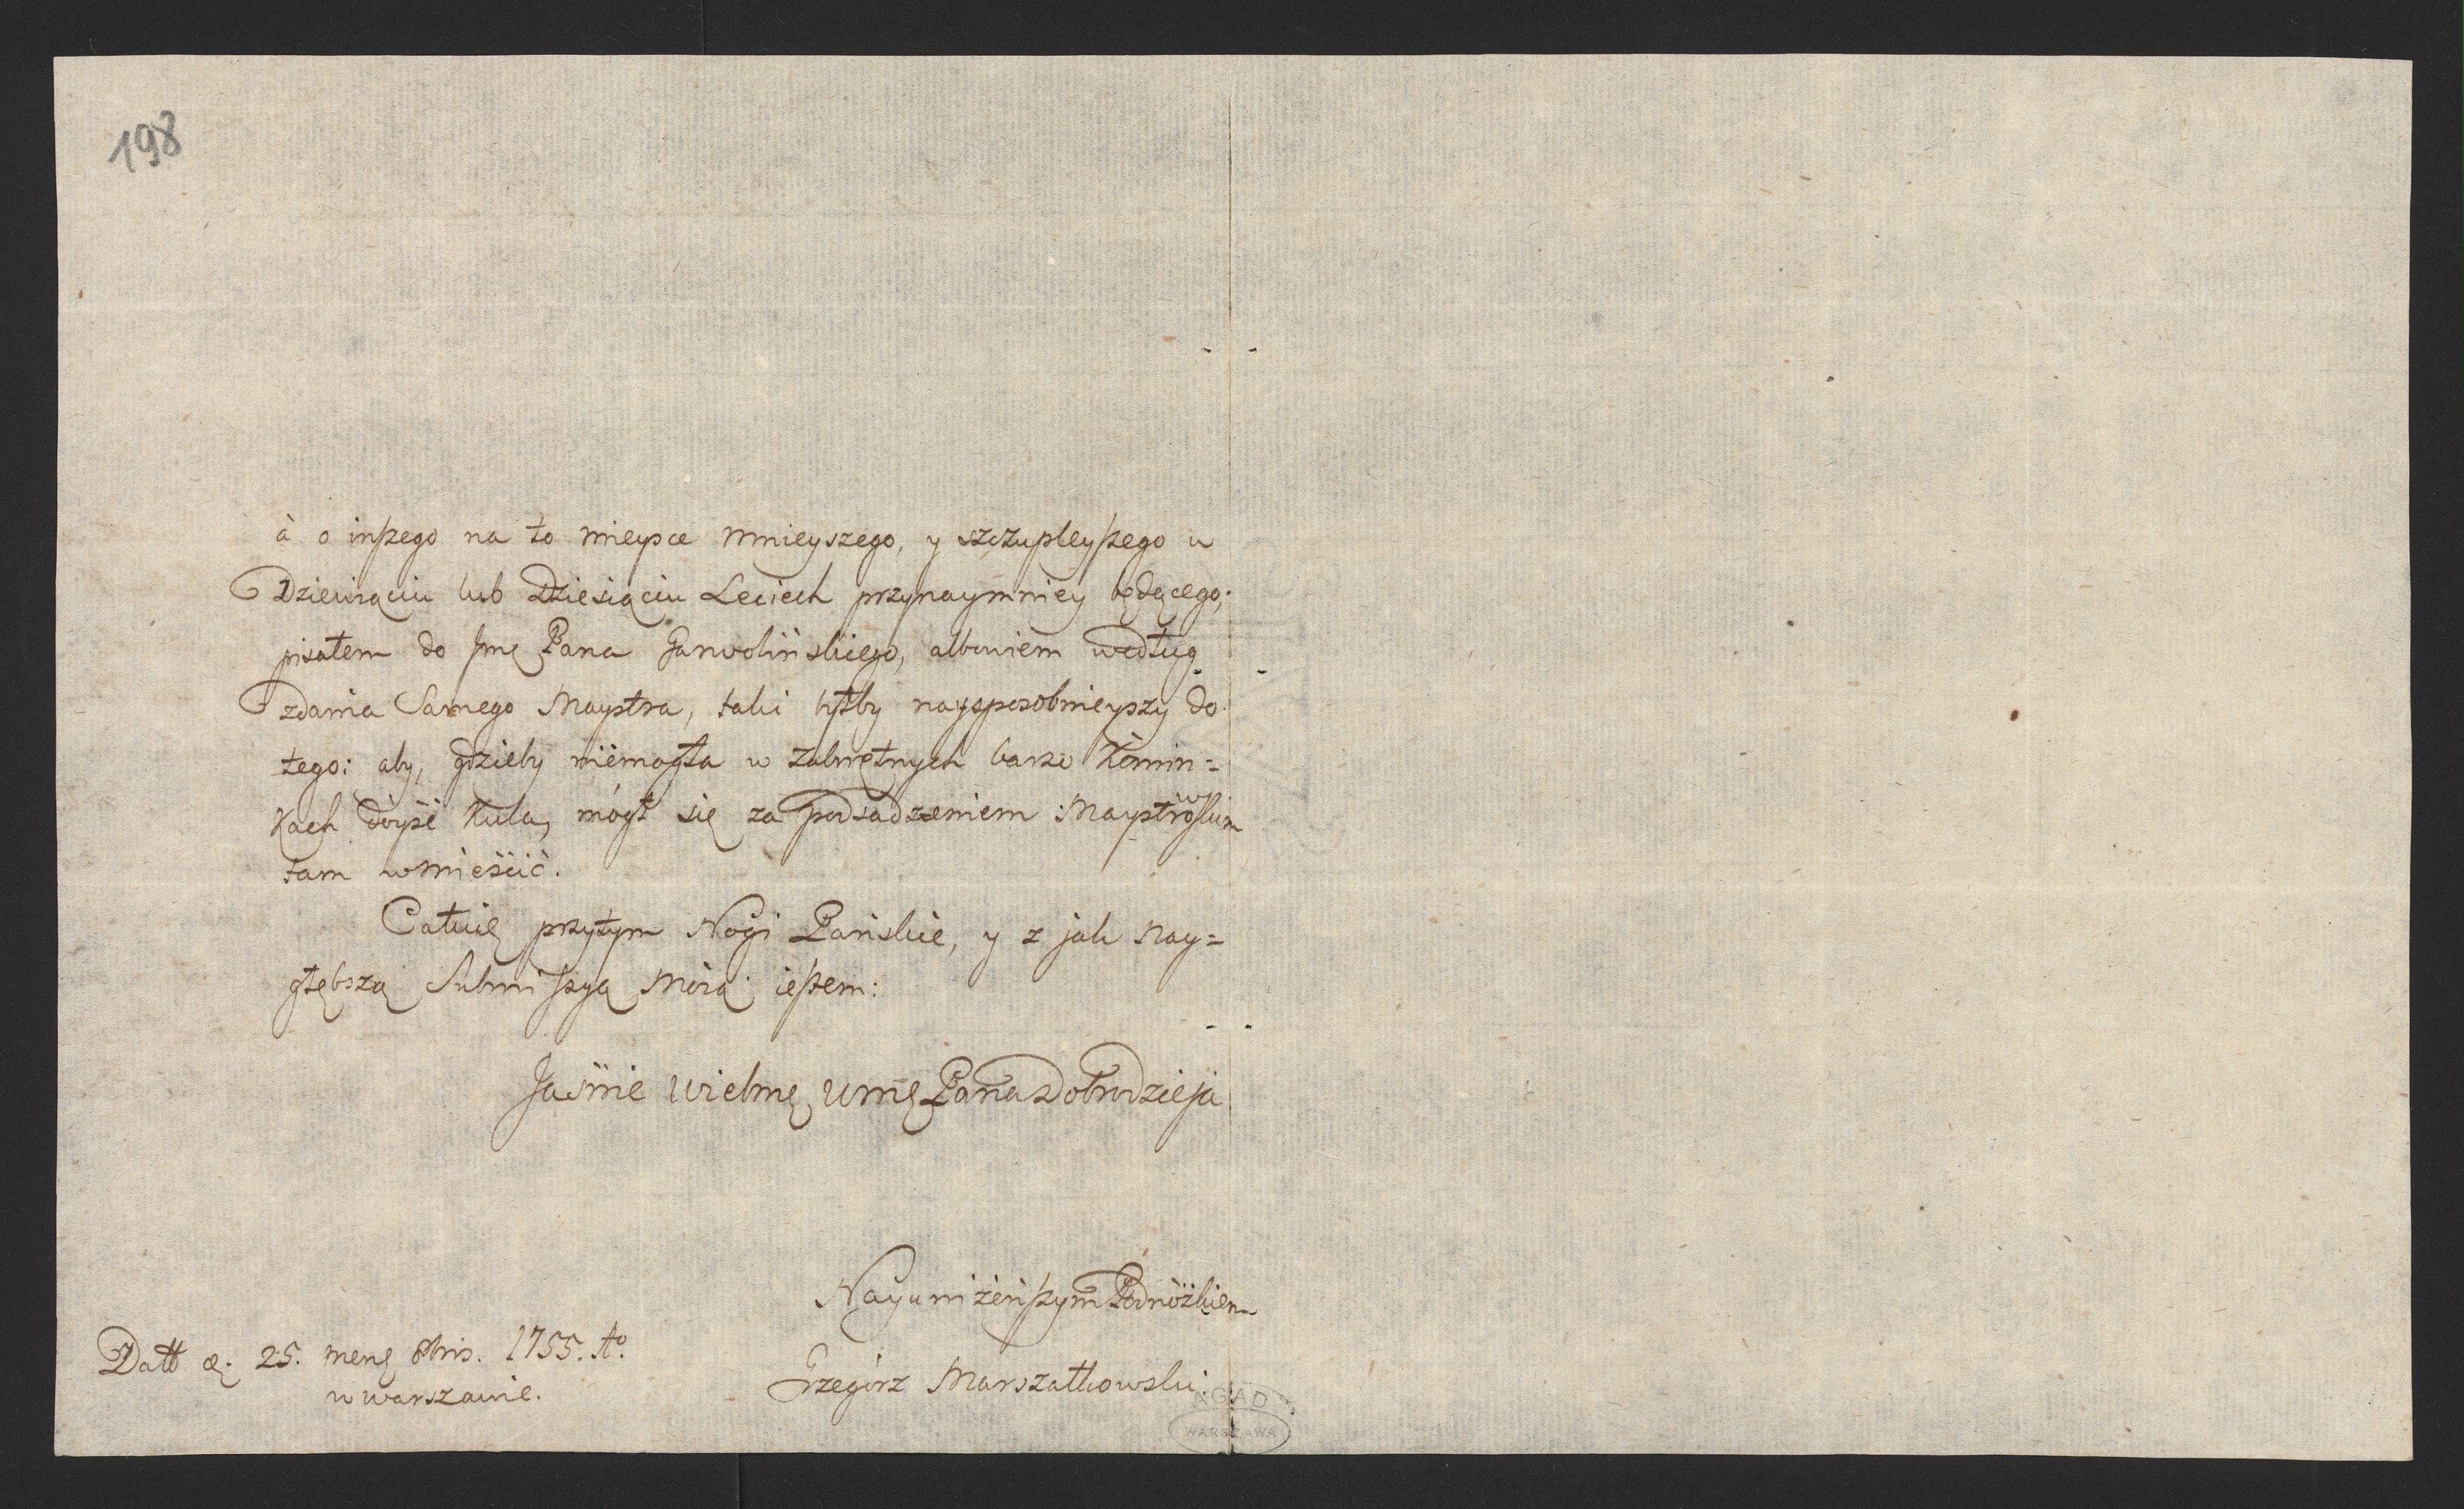 198
à o inszego na to mieysce mnieyszego, y szczupleyszego w
Dziewiąciu lub Dziesiąciu Leciech przynaymniey będęcego;
pisałem do Jmę Pana Garwolińskiego, albowiem według
zdania Samego Maystra, taki byłby naysposobnieyszy do
tego: aby, gdzieby niemogła w zakrętnych barzo Komin=
kach dóyść Kula, mógł się za podsadzeniem Maystrowskim
tam wmieścić.
Całuię przytym Nogi Pańskie, y z jak nay=
głębszą Submissyą Móią iestem:
Jaśnie Wielmę Umę Pana Dobrodzieja
Nayuniżeńszym Podnóżkiem
Grzegórz Marszałkowski.
Datt d. 25. meng 8bris. 1755. Aº.
w warszawie.
AGAD
WARSZAWA